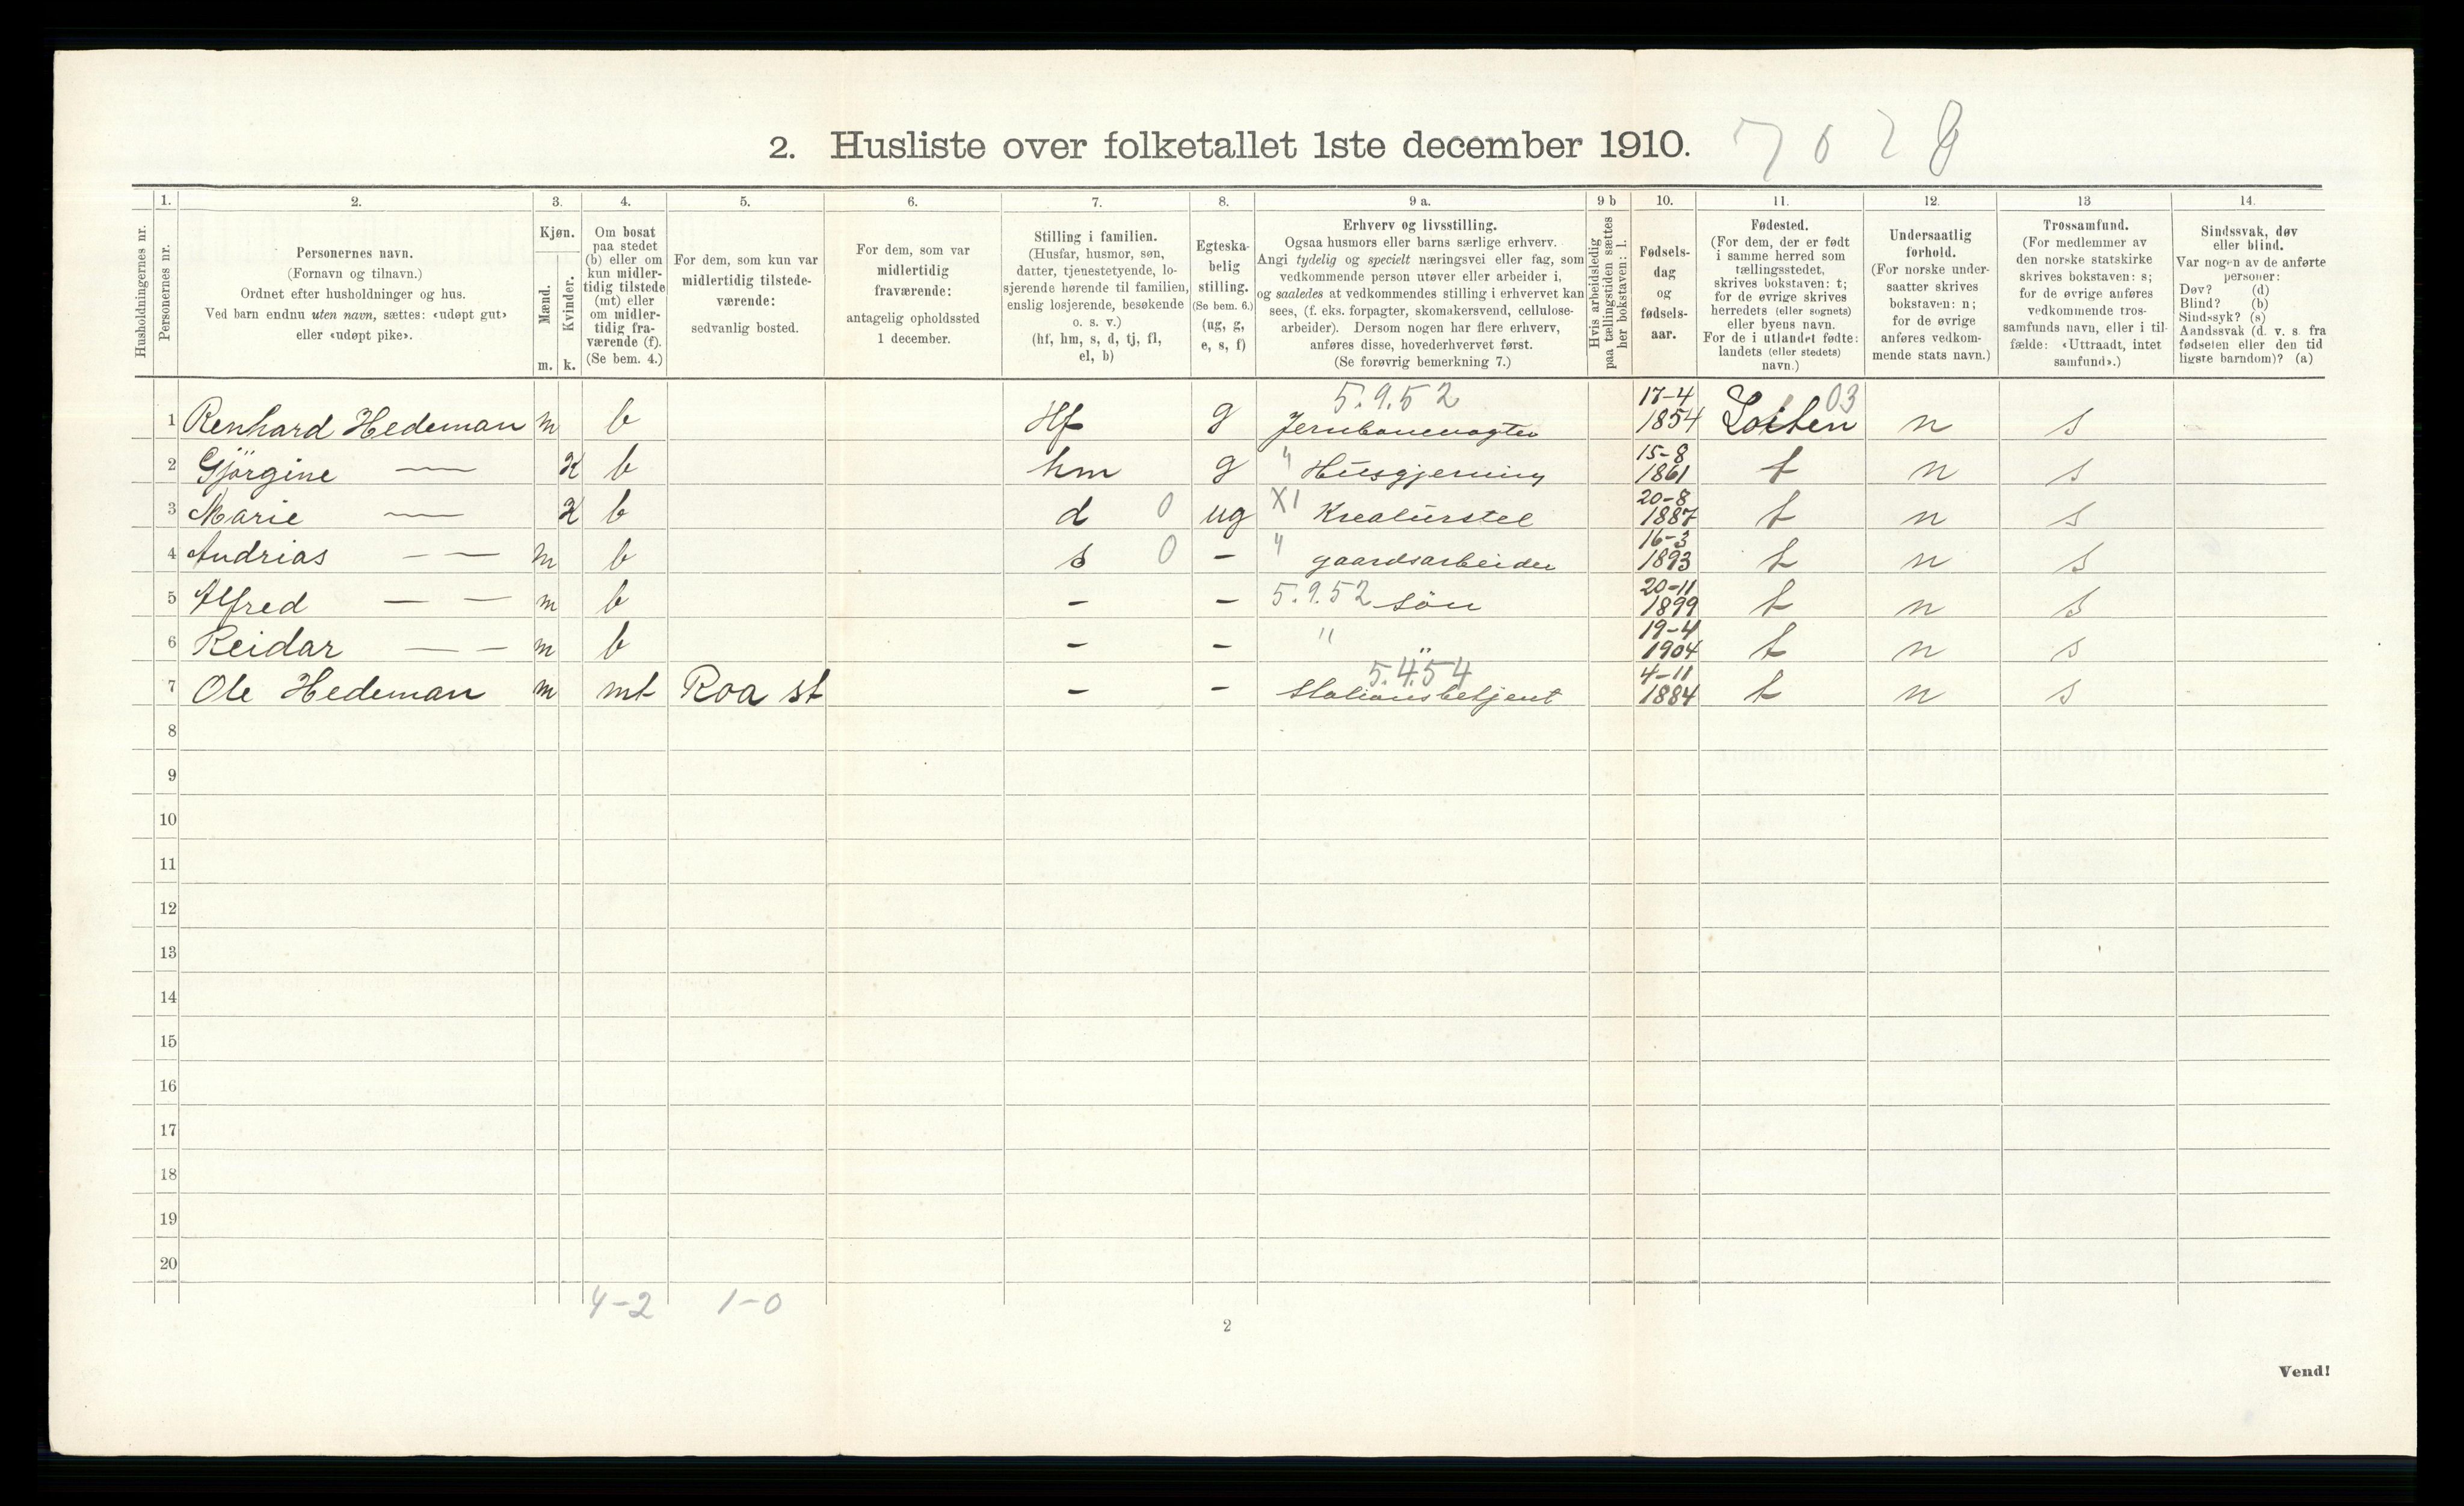 2. Husliste over folketallet 1ste december 1910.
1. 2. 3. 4. 5. 6. 7. 8. 9 a. 9 b 10. 11. 12. 13 14.
Husholdningernes nr.
Personernes nr.
Personernes navn.
(Fornavn og tilnavn.)
Ordnet efter husholdninger og hus.
Ved barn endnu uten navn, sættes: «udøpt gut»
eller «udøpt pike».
Kjøn.
Mænd.
Kvinder.
m. k.
Om bosat
paa stedet
(b) eller om
kun midler-
tidig tilstede
(mt) eller
om midler-
tidig fra-
værende (f).
(Se bem. 4.)
For dem, som kun var
midlertidig tilstede-
værende:
sedvanlig bosted.
For dem, som var
midlertidig
fraværende:
antagelig opholdssted
1 december.
Stilling i familien.
(Husfar, husmor, søn,
datter, tjenestetyende, lo-
sjerende hørende til familien,
enslig losjerende, besøkende
o. s. v.)
(hf, hm, s, d, tj, fl,
el, b)
Egteska-
belig
stilling.
(Se bem. 6.)
(ug, g,
e, s, f)
Erhverv og livsstilling.
Ogsaa husmors eller barns særlige erhverv.
Angi tydelig og specielt næringsvei eller fag, som
vedkommende person utøver eller arbeider i,
og saaledes at vedkommendes stilling i erhvervet kan
sees, (f. eks. forpagter, skomakersvend, cellulose-
arbeider). Dersom nogen har flere erhverv,
anføres disse, hovederhvervet først.
(Se forøvrig bemerkning 7.)
Hvis arbeidsledig
paa tællingstiden sættes
her bokstaven: l.
Fødsels-
dag
og
fødsels-
aar.
Fødested.
(For dem, der er født
i samme herred som
tællingsstedet,
skrives bokstaven: t;
for de øvrige skrives
herredets (eller sognets)
eller byens navn.
For de i utlandet fødte:
landets (eller stedets)
navn.)
Undersaatlig
forhold.
(For norske under-
saatter skrives
bokstaven: n;
for de øvrige
anføres vedkom-
mende stats navn.)
Trossamfund.
(For medlemmer av
den norske statskirke
skrives bokstaven: s;
for de øvrige anføres
vedkommende tros-
samfunds navn, eller i til-
fælde: «Uttraadt, intet
samfund».)
Sindssvak, døv
eller blind.
Var nogen av de anførte
personer:
Døv? (d)
Blind? (b)
Sindssyk? (s)
Aandssvak (d. v. s. fra
fødselen eller den tid-
ligste barndom)? (a)
5.9.52 17-4 03
1 Renhard Hedeman m b Hf g Jernbanevogter 1854 Loiten n s
15-8
2 Gjörgine — K b hm g " Husgjerning 1861 t n s
20-8
3 Marie — K b d 0 ug XI Kreaturstel 1887 t n s
16-3
4 Andrias — — m b s 0 - " gaardsarbeider 1893 t n s
20-11
5 Alfred — — m b - - 5.9.52 sön 1899 t n s
19-4
6 Reidar — — m b - - " " 1904 t n s
5.4.54 4-11
7 Ole Hedeman m mt Roa st - - Stationsbetjent 1884 t n s
8
9
10
11
12
13
14
15
16
17
18
19
20
4-2 1-0
2
Vend!